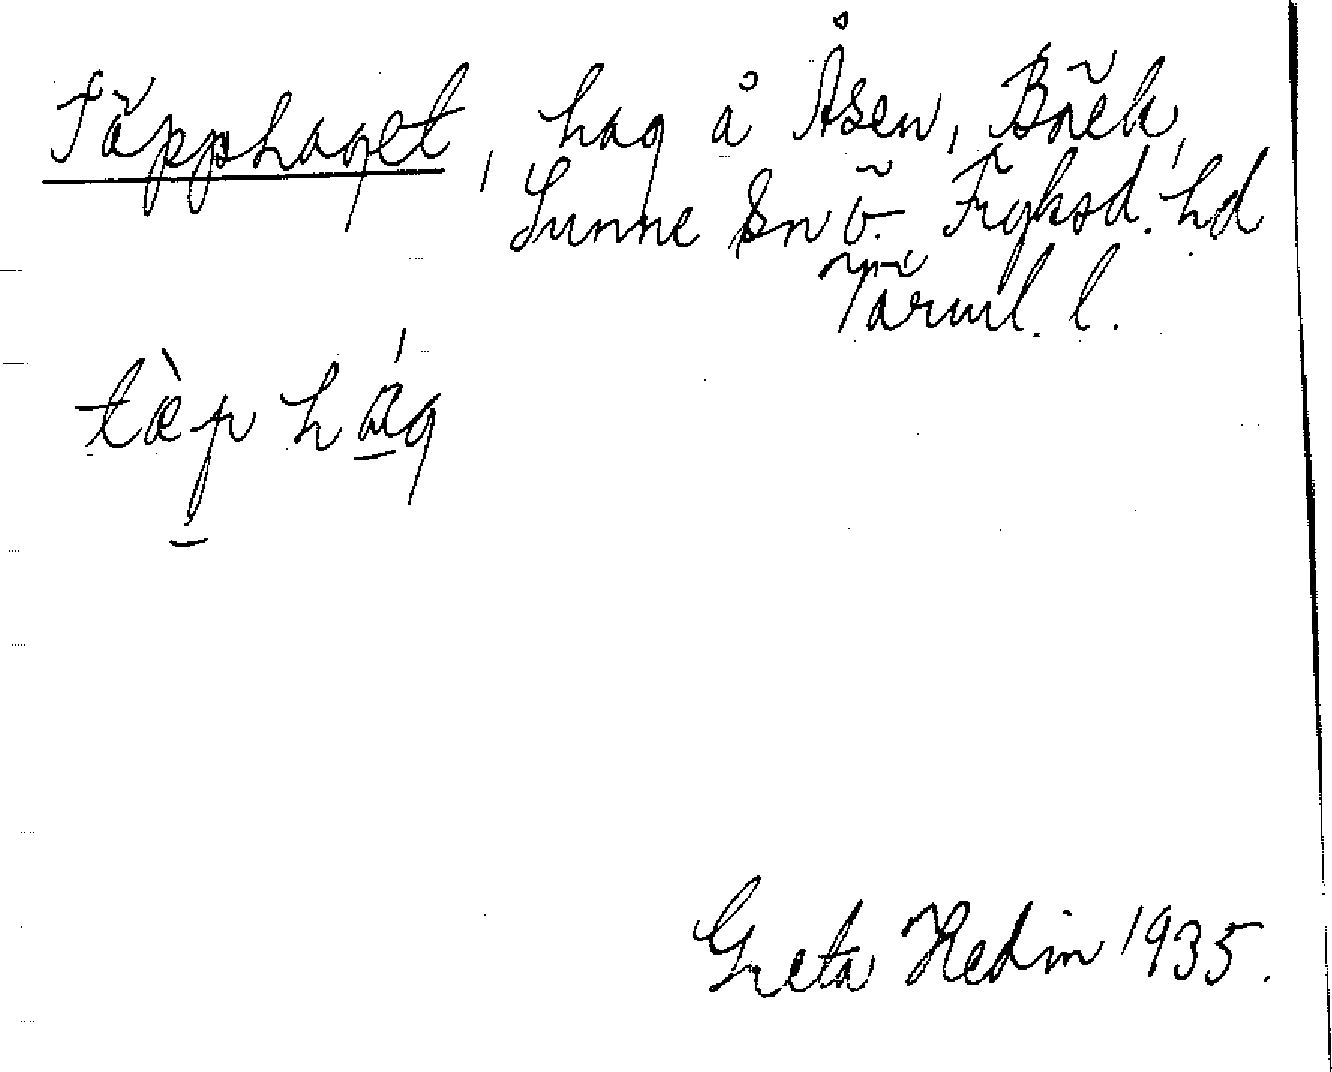 Täpphaget, hag å Åsen, Bäck,
Sunne Sn Ö. Fryksd. hd
Värml. l.
tæ̀p hág
Greta Hedin 1935.